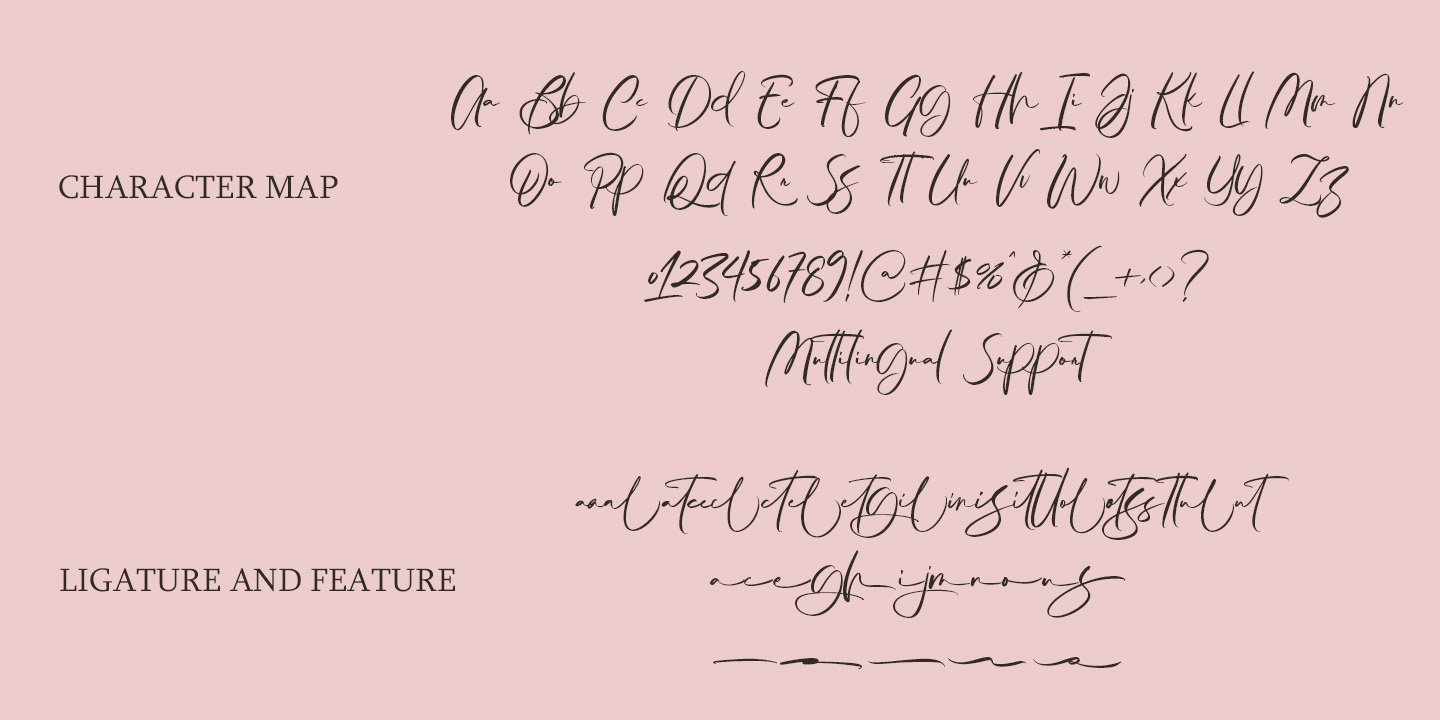 Aa Bb Cc Dd Ee Ff Gg Hh Ii Jj Kk Ll Mm Nn
CHARACTER MAP
Oo Pp Qq Rr Ss Tt Uu Vv Ww Xx Yy Zz
0123456789!@#$%^&*(_+,()?
Multilingual Support
LIGATURE AND FEATURE
a c e g h i j m n o u s